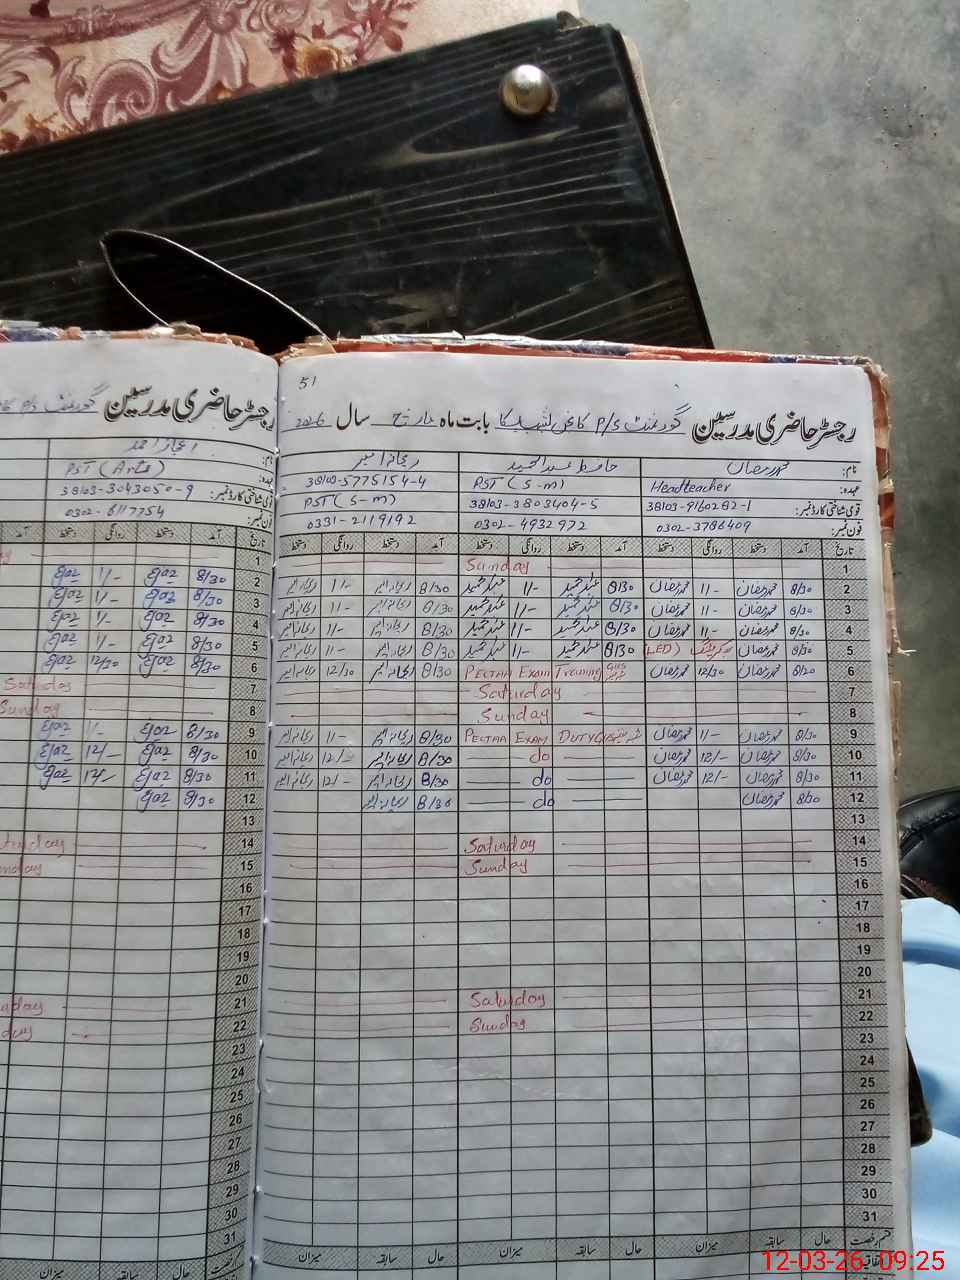 51
رجسٹر حاضری مدرسین گورنمنٹ P/S بابت ماہ مارچ سال 2026
نام: محمد رمضان حافظ عبدالحمید
عہدہ: Headteacher PST (S-m) PST (S-m)
قومی شناختی کارڈ نمبر: 38103-9160282-1 38103-3803404-5 38103-5775154-4
فون نمبر: 0302-3786409 0302-4932972 0331-2119192
تاریخ آمد دستخط روانگی دستخط آمد دستخط روانگی دستخط آمد دستخط روانگی دستخط
1 Sunday
2 8/30 محمد رمضان 11/- محمد رمضان 8/30 عبدالحمید 11/- عبدالحمید 8/30 11/-
3 8/30 محمد رمضان 11/- محمد رمضان 8/30 عبدالحمید 11/- عبدالحمید 8/30 11/-
4 8/30 محمد رمضان 11/- محمد رمضان 8/30 عبدالحمید 11/- عبدالحمید 8/30 11/-
5 8/30 محمد رمضان (LED) 8/30 عبدالحمید 11/- عبدالحمید 8/30 11/-
6 محمد رمضان 12/30 محمد رمضان PECTAA Exam Training 8/30 12/30
7 Saturday
8 Sunday
9 8/30 محمد رمضان 11/- محمد رمضان PECTAA EXAM DUTY 8/30 11/-
10 8/30 محمد رمضان 12/- محمد رمضان do 8/30 12/-
11 8/30 محمد رمضان 12/- محمد رمضان do 8/30 12/-
12 محمد رمضان do 8/30
13
14 Saturday
15 Sunday
16
17
18
19
20
21 Saturday
22 Sunday
23
24
25
26
27
28
29
30
31
قسم رخصت حال سابقہ میزان حال سابقہ میزان حال سابقہ میزان
رجسٹر حاضری مدرسین گورنمنٹ P/S
نام: اعجاز احمد
عہدہ: PST (Arts)
قومی شناختی کارڈ نمبر: 38103-3043050-9
فون نمبر: 0302-6117754
تاریخ آمد دستخط روانگی دستخط
1
2 8/30 Ejaz 1/- Ejaz
3 8/30 Ejaz 1/- Ejaz
4 8/30 Ejaz 1/- Ejaz
5 8/30 Ejaz 1/- Ejaz
6 8/30 Ejaz 12/30 Ejaz
7 Saturday
8 Sunday
9 8/30 Ejaz 1/- Ejaz
10 8/30 Ejaz 12/- Ejaz
11 8/30 Ejaz 12/- Ejaz
12 8/30 Ejaz
13
14
15
16
17
18
19
20
21
22
23
24
25
26
27
28
29
30
31
حال سابقہ میزان
12-03-26 09:25